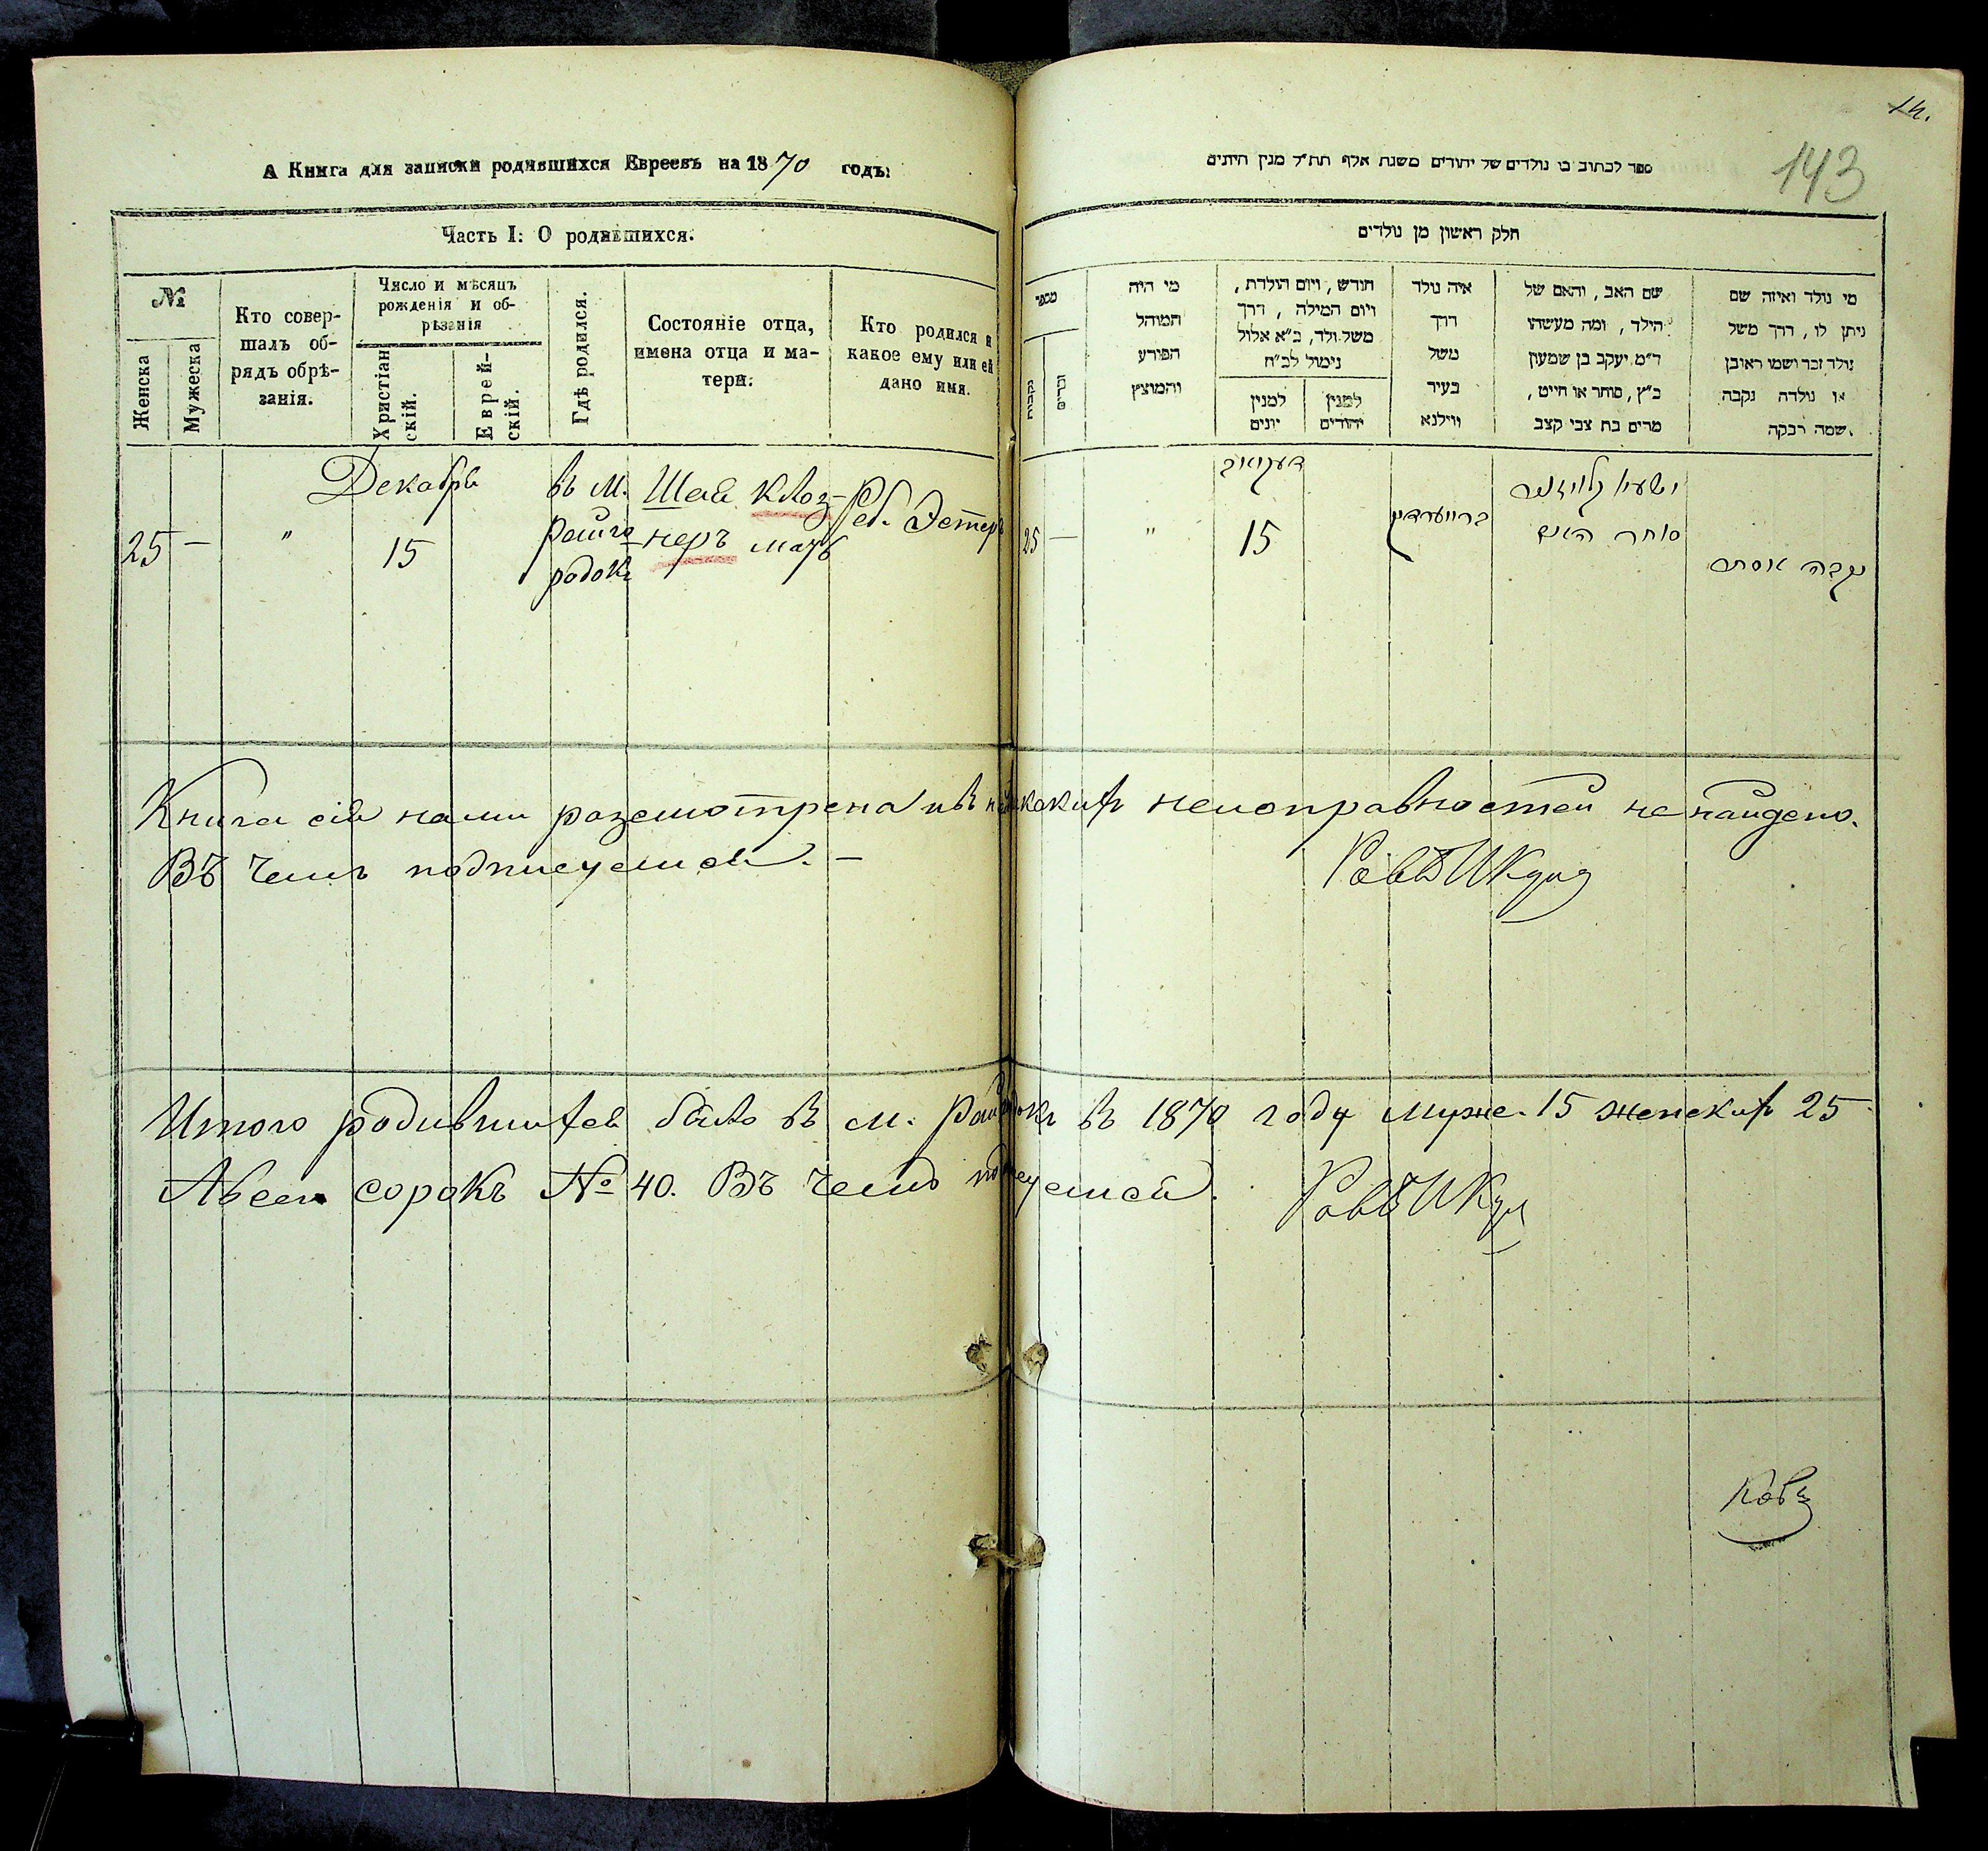 А Книга для записки родившихся Евреевъ на 1870 годъ:
Часть I: О родившихся.
№
Женска
Мужеска
Кто совер-
шалъ об-
рядъ обрѣ-
занія.
Число и мѣсяцъ
рожденія и об-
рѣзанія
Христіан
скій.
Еврей-
скій.
Гдѣ родился.
Состояніе отца,
имена отца и ма-
тери:
Кто родился и
какое ему или ей
дано имя.
25
—
"
Декабрь
15
въ м.
Райго
родкѣ
Шая Клоз-
неръ мать
Реб. Эстеръ
14.
143
ספר לכתוב בו נולדים של יהודים משנת אלף תת״ל מנין היונים
חלק ראשון מן נולדים
מי נולד ואיזה שם
ניתן לו, דרך משל
נולד זכר ושמו ראובן
או נולדה נקבה
שמה רבקה.
שם האב, והאם של
הילד, ומה מעשהו
ד״מ יעקב בן שמעון
כ״ץ, סוחר או חייט,
מרים בת צבי קצב
איה נולד
דרך
משל
בעיר
ווילנא
חודש, ויום הולדת,
ויום המילה, דרך
משל ולד, כ״א אלול
נימול לכ״ח
למנין
יהודים
למנין
יונים
מי היה
המוהל
הפורע
והמוצץ
מספר
זכרים
נקבות
נקבה אסתר
ישעי׳ קלויזנער
סוחר
15
"
—
25
Книга сія нами разсмотрена и въ ней никакихъ неисправностей не найдено.
Въ чемъ подписуемся. —
Итого родившихся было въ м. Райгородкѣ въ 1870 году муже. 15 женскихъ 25
Авсего сорокъ № 40. Въ чемъ подписуемся.